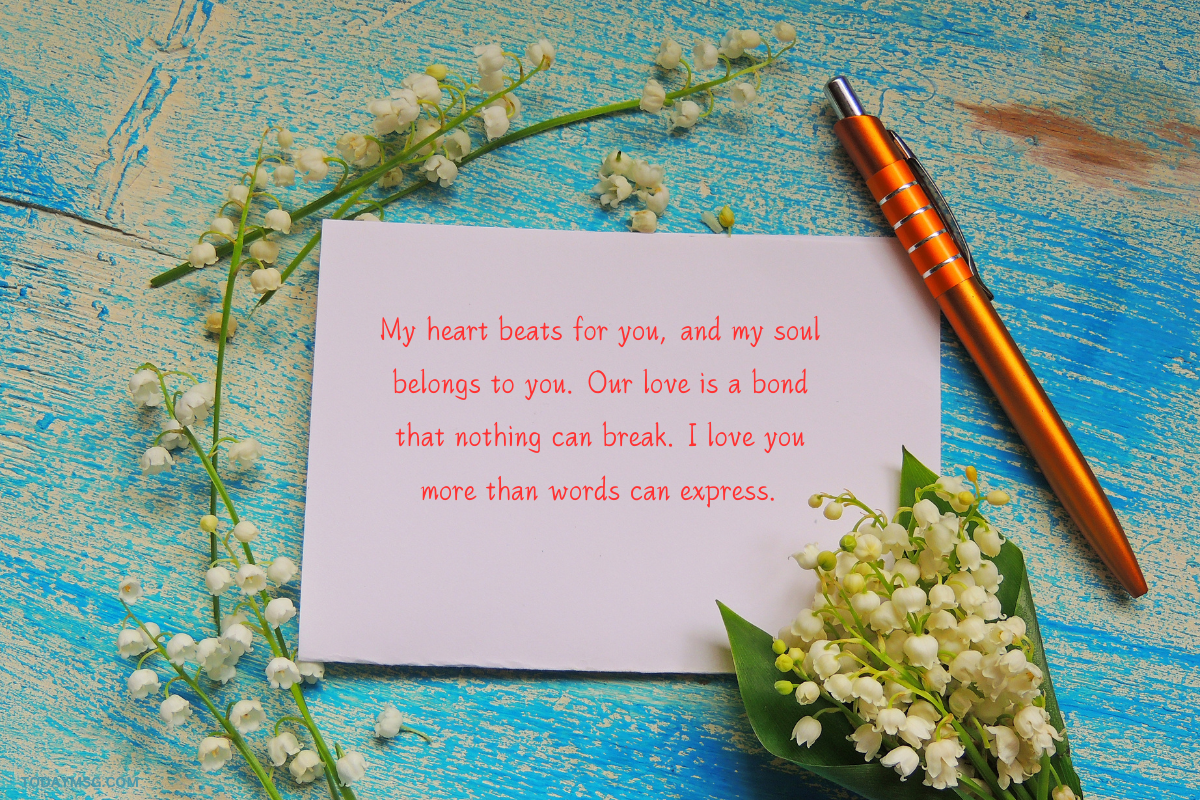 My heart beats for you, and my soul
belongs to you. Our love is a bond
that nothing can break. I love you
more than words can express.
TODAYMSG.COM